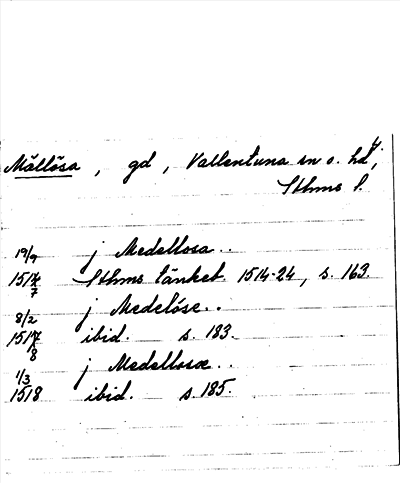 Mällösa, gd, Vallentuna sn o. hd,
Sthms l.
19/9 j Medellosa..
1517 Sthms tänkeb 1514-24, s. 163.
7
8/2 j Medelöse..
1517 ibid. s. 183.
8
1/3 j Medellosæ..
1518 ibid. s. 185.